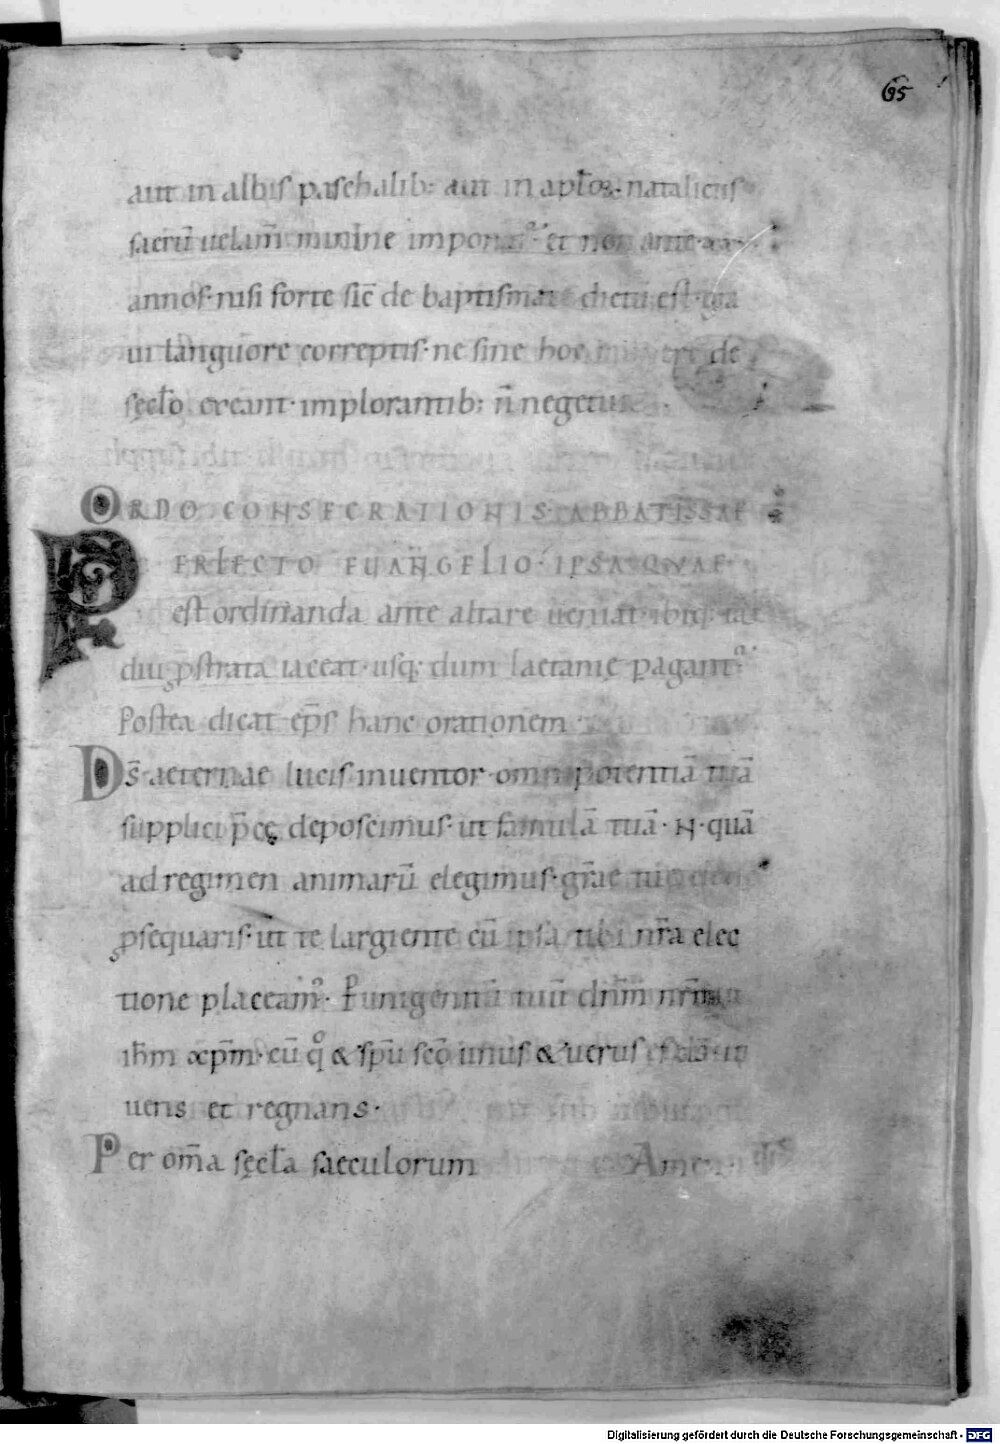 65
aut in albis paschalib: aut in aptꝉoꝝ·nataliciis
sacrū uelam̄ minime imponat᷑· et non ante·xxv·
annos·nisi forte sic̄ de baptismate dictū est·gra
ui languore correptis·ne sine hoc munere de
sęcꝉo exeant·implorantib: n̄ negetur·
ORDO CONSECRATIONIS·ABBATISSAE
PERLECTO EUANGELIO·IPSA QUAE
est ordinanda ante altare ueniat·ibiq: tā
diu ꝓstrata iaceat·usq: dum laetanię pagant᷑
Postea dicat ep̄s hanc orationem·
Ds̄ aeternae lucis inuentor·omnipotentiā tuā
supplici p̄cę deposcimus·ut famulā tuā·N·quā
ad regimen animarū elegimus·gr̄ae tuę
ꝓsequaris·ut te largiente cū ipsa tibi nr̄a elec
tione placeam᷒· P unigenitū tuū dn̄m nr̄m
ih̄m xp̄m·cū q̊ & sp̄u sc̄o unus & uerus
uens et regnans·
Per om̄a sęcꝉa saeculorum Amen·
Digitalisierung gefördert durch die Deutsche Forschungsgemeinschaft - DFG